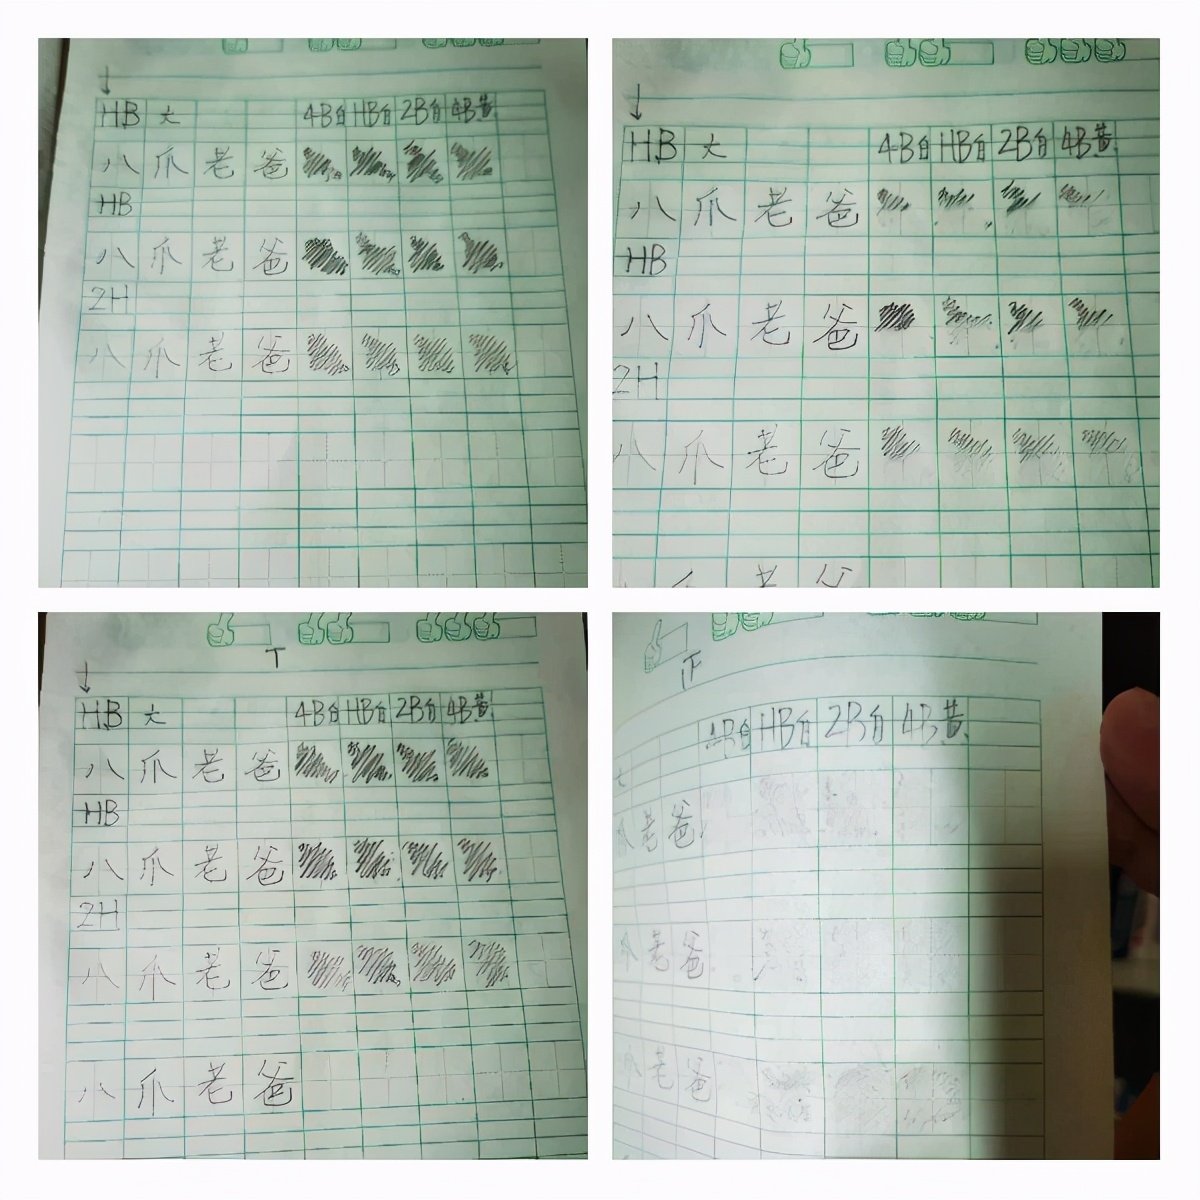 HB 大 4B白 HB白 2B白 4B黄
八 爪 老 爸
HB
八 爪 老 爸
2H
八 爪 老 爸
HB 大 4B白 HB白 2B白 4B黄
八 爪 老 爸
HB
八 爪 老 爸
2H
八 爪 老 爸
T
HB 大 4B白 HB白 2B白 4B黄
八 爪 老 爸
HB
八 爪 老 爸
2H
八 爪 老 爸
八 爪 老 爸
正
4B白 HB白 2B白 4B黄
爪 老 爸
爪 老 爸
爪 老 爸